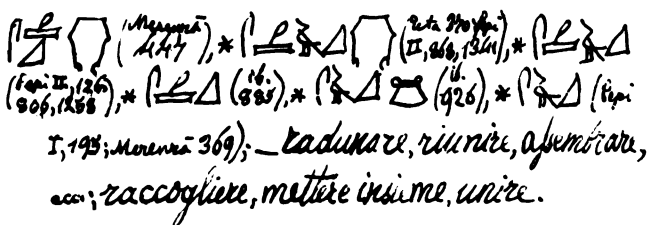 (Merenrâ 447), * (Teta 270, Pepi II, 868, 1341), *
(Pepi II, 126, 806, 1258), * (ib. 885), * (ib. 926), * (Pepi
I, 195; Merenrâ 369); — radunare, riunire, assembrare,
ecc.; raccogliere, mettere insieme, unire.